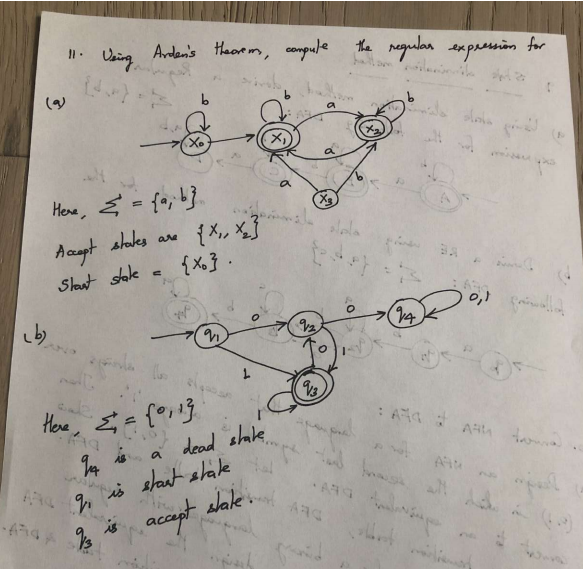 11. Using Arden's theorem, compute the regular expression for
(a)
b b a b
X₀ X₁ X₂
a
a b
X₃
Here, Σ = {a, b}
Accept states are {X₁, X₂}
Start state = {X₀}.
(b)
0 0 0,1
q₁ q₂ q₄
1 0 1
q₃
1
Here, Σ = {0, 1}
q₄ is a dead state
q₁ is start state
q₃ is accept state.